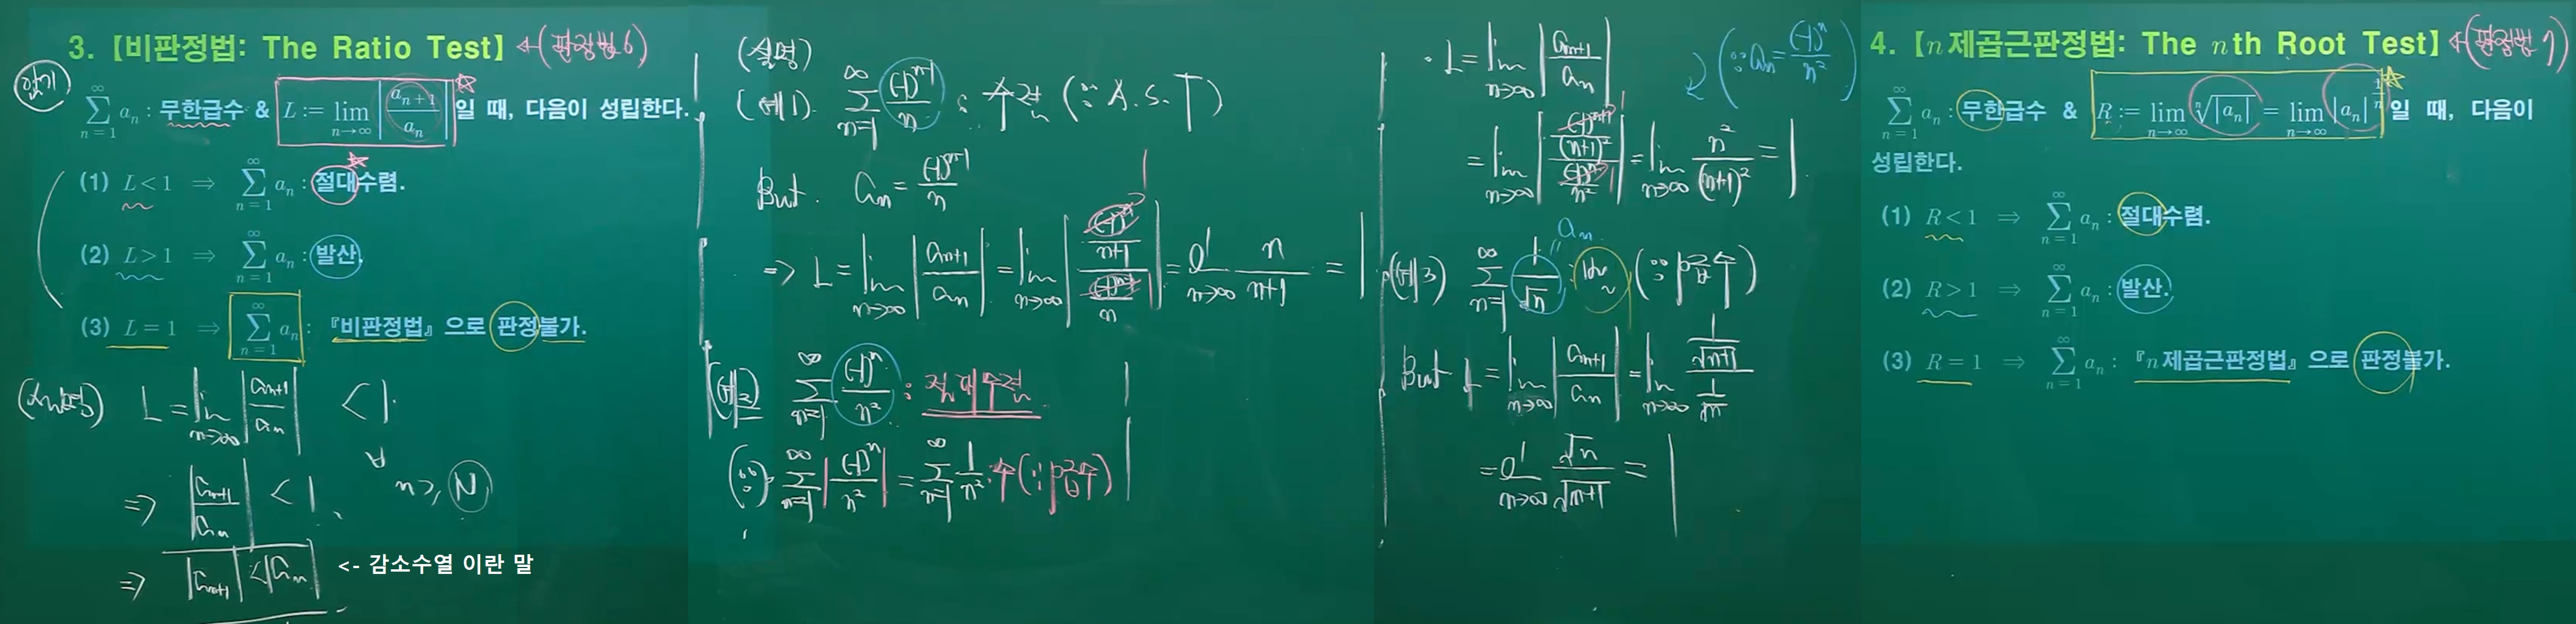 3. 【비판정법: The Ratio Test】 ←(판정법6)
암기
∑_{n=1}^{∞} a_n : 무한급수 & L := lim_{n→∞} |a_{n+1}/a_n| 일 때, 다음이 성립한다.
(1) L < 1 ⇒ ∑_{n=1}^{∞} a_n : 절대수렴.
(2) L > 1 ⇒ ∑_{n=1}^{∞} a_n : 발산.
(3) L = 1 ⇒ ∑_{n=1}^{∞} a_n : 『비판정법』으로 판정불가.
(설명) L = lim_{n→∞} |a_{n+1}/a_n| < 1.
⇒ |a_{n+1}/a_n| < 1, ∀ n ≥ N
⇒ |a_{n+1}| < |a_n| <- 감소수열 이란 말
(설명)
(예1). ∑_{n=1}^{∞} (-1)^{n-1}/n : 수렴 (∵ A.S.T)
But. a_n = (-1)^{n-1}/n
⇒ L = lim_{n→∞} |a_{n+1}/a_n| = lim_{n→∞} |((-1)^n/(n+1))/((-1)^{n-1}/n)| = lim_{n→∞} n/(n+1) = 1
(예2) ∑_{n=1}^{∞} (-1)^n/n² : 절대수렴
(∵). ∑_{n=1}^{∞} |(-1)^n/n²| = ∑_{n=1}^{∞} 1/n² : 수 (∵ p급수)
· L = lim_{n→∞} |a_{n+1}/a_n| (∵ a_n = (-1)^n/n²)
= lim_{n→∞} |((-1)^{n+1}/(n+1)²)/((-1)^n/n²)| = lim_{n→∞} n²/(n+1)² = 1.
a_n
(예3) ∑_{n=1}^{∞} 1/√n : div (∵ p급수)
But L = lim_{n→∞} |a_{n+1}/a_n| = lim_{n→∞} (1/√(n+1))/(1/√n)
= lim_{n→∞} √n/√(n+1) = 1
4. 【n제곱근판정법: The nth Root Test】 ←(판정법7)
∑_{n=1}^{∞} a_n : 무한급수 & R := lim_{n→∞} ⁿ√|a_n| = lim_{n→∞} |a_n|^{1/n} 일 때, 다음이
성립한다.
(1) R < 1 ⇒ ∑_{n=1}^{∞} a_n : 절대수렴.
(2) R > 1 ⇒ ∑_{n=1}^{∞} a_n : 발산.
(3) R = 1 ⇒ ∑_{n=1}^{∞} a_n : 『n제곱근판정법』으로 판정불가.